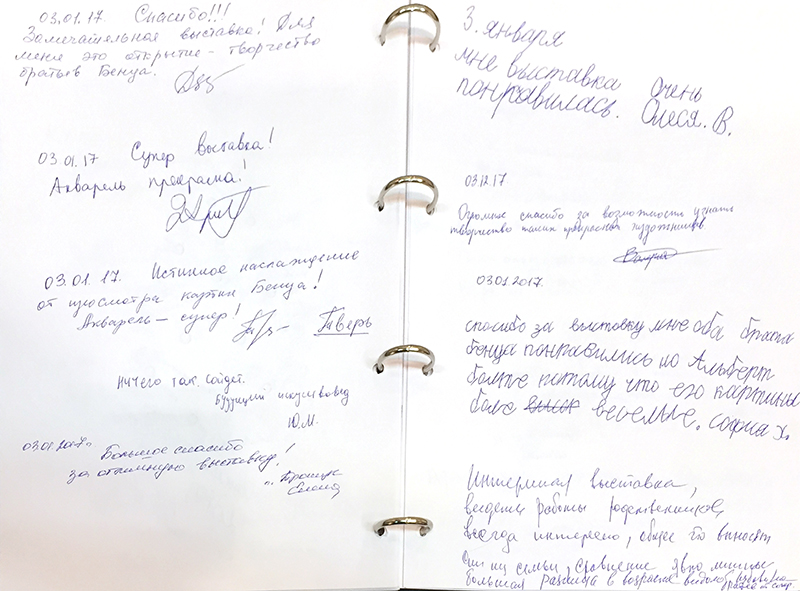 03.01.17. Спасибо!!!
Замечательная выставка! Для
меня это открытие - творчество
братьев Бенуа.
03.01.17 Супер выставка!
Акварель прекрасна!
03.01.17. Истинное наслаждение
от просмотра картин Бенуа!
Акварель - супер! Тверь
ничего так. сойдет.
будущий искусствовед
Ю.М.
03.01.2017г. Большое спасибо
за отличную выставку!
3. января
мне выставка очень
понравилась. Олеся. В.
03.12.17
Огромное спасибо за возможность узнать
творчество таких прекрасных художников
03.01.2017.
спасибо за выставку мне оба брата
бенуа понравились но Альберт
более потому что его картины
боле веселые. софия х.
Интересная выставка,
работы родственников,
всегда интересно, общее
семьи, сравнение
большая разница в возрасте